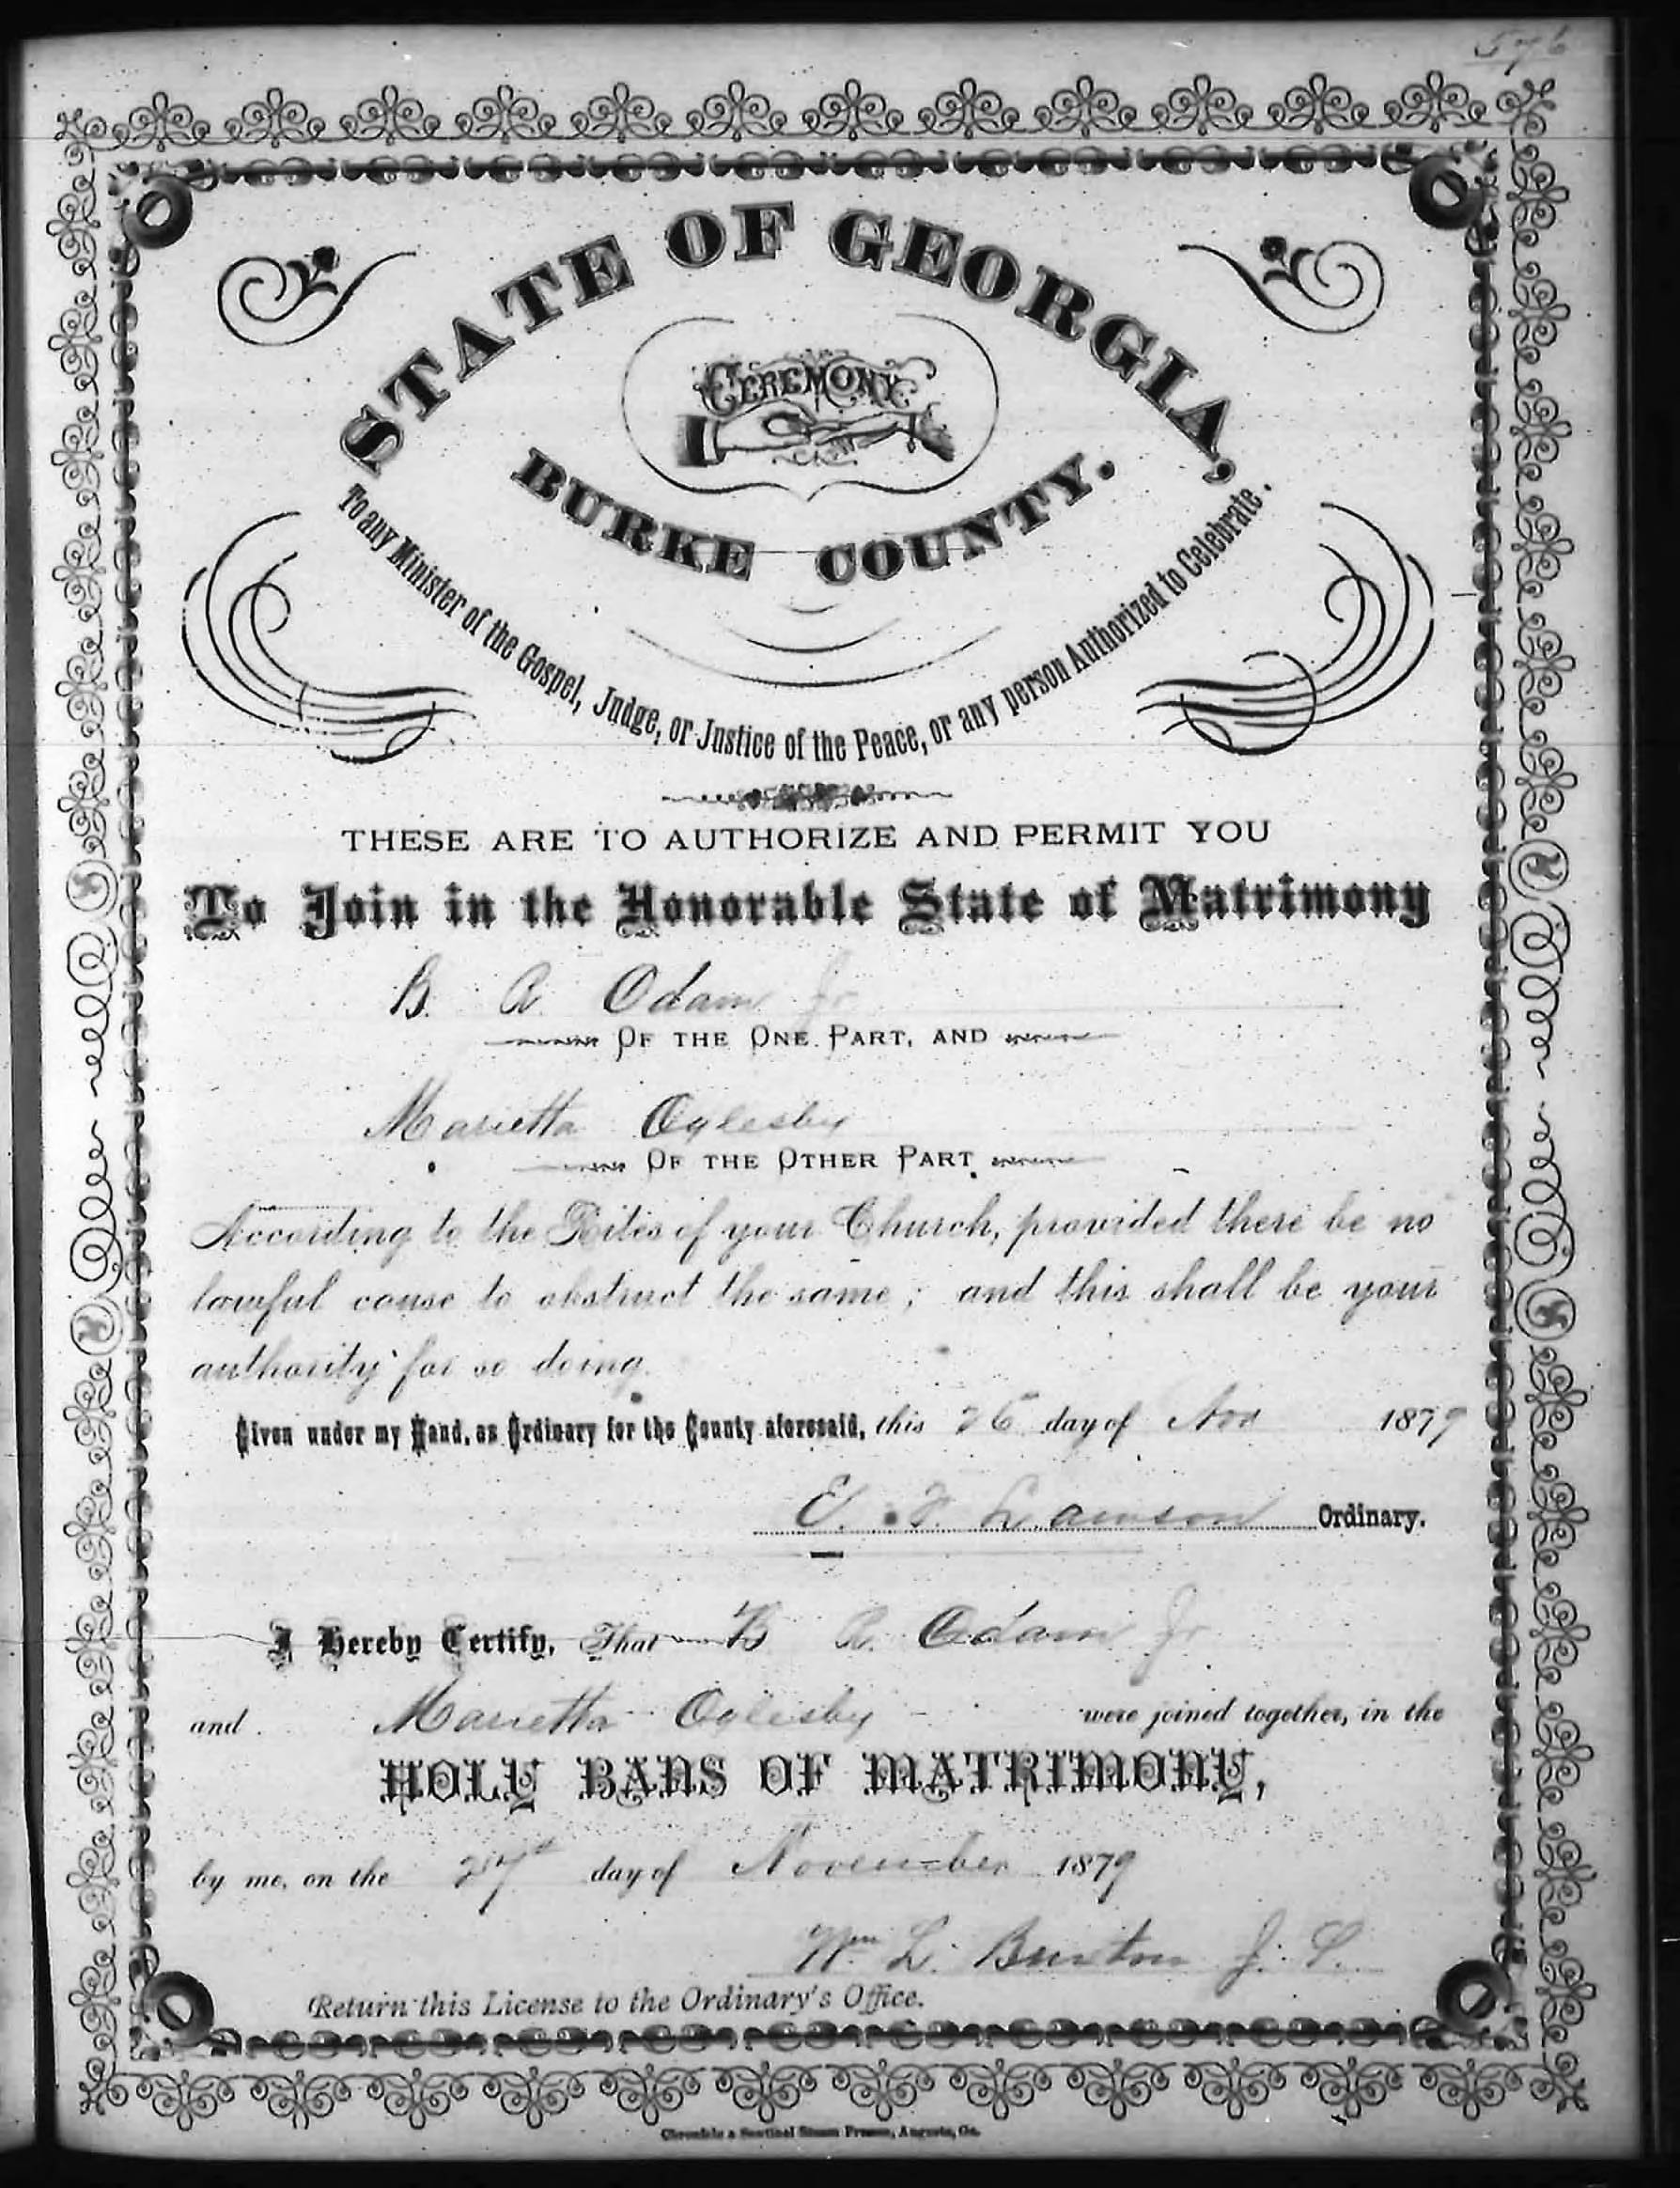 576
STATE OF GEORGIA,
CEREMONY
BURKE COUNTY.
To any Minister of the Gospel, Judge, or Justice of the Peace, or any person Authorized to Celebrate.
THESE ARE TO AUTHORIZE AND PERMIT YOU
To Join in the Honorable State of Matrimony
B. A. Odam Jr
OF THE ONE PART, AND
Marietta Oglesby
OF THE OTHER PART.
According to the Rites of your Church, provided there be no
lawful cause to obstruct the same; and this shall be your
authority for so doing.
Given under my Hand, as Ordinary for the County aforesaid, this 26 day of Nov 1879
E. F. Lawson Ordinary.
I Hereby Certify, That B A. Odam Jr
and Marietta Oglesby were joined together, in the
HOLY BANS OF MATRIMONY,
by me, on the 27th day of November 1879
Wm L. Burton J. P.
Return this License to the Ordinary's Office.
Chronicle & Sentinel Steam Presses, Augusta, Ga.